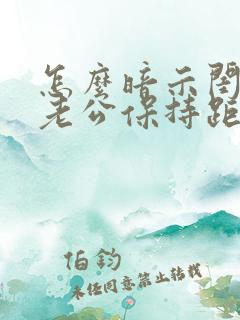 怎麼暗示閨
老公保持距
伯鈞
未任同意禁止转载